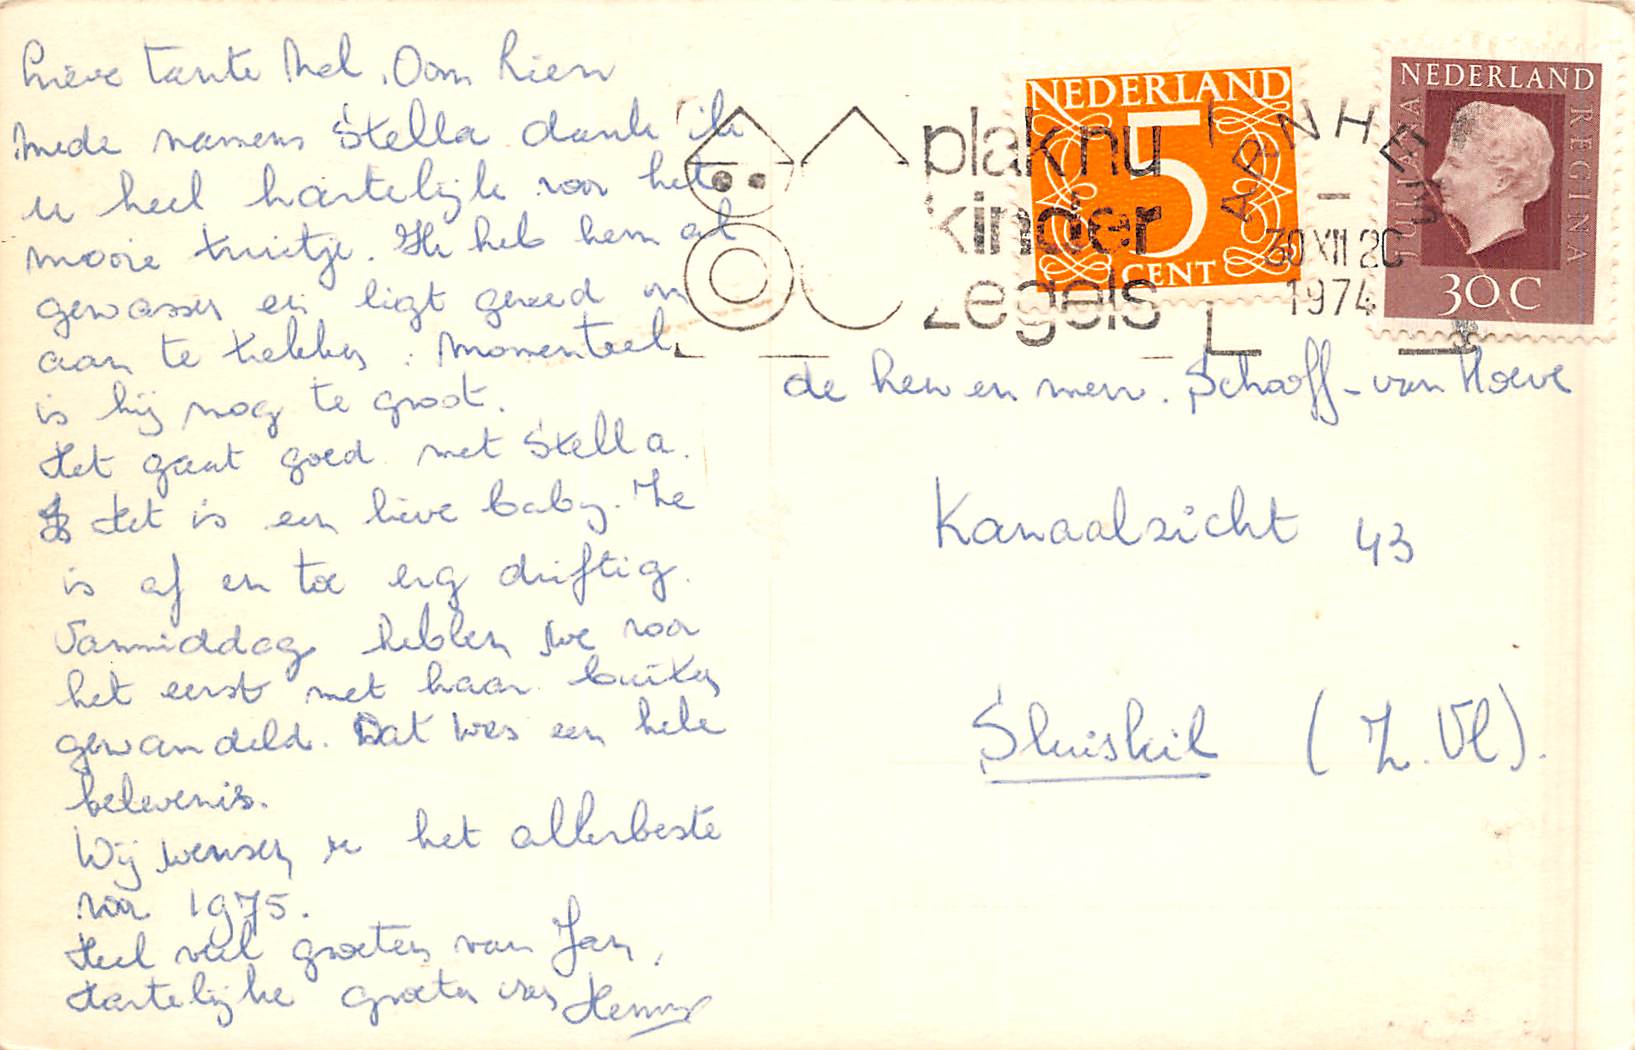 Lieve tante Nel, Oom Rien
Mede namens Stella dank ik
u heel hartelijk voor het
mooie truitje. Ik heb hem al
gewassen en ligt gereed om
aan te trekken. Momenteel
is hij nog te groot.
Het gaat goed met Stella.
Het is een lieve baby. Ze
is af en toe erg driftig.
Vanmiddag hebben we voor
het eerst met haar buiten
gewandeld. Dat was een hele
belevenis.
Wij wensen u het allerbeste
voor 1975.
Heel veel groeten van Jan,
Hartelijke groeten van Henny
plak nu
kinder
zegels
NEDERLAND
5
CENT
ARNHEM
30 XII 20
1974
NEDERLAND
JULIANA
REGINA
30 C
de heer en mevr. Schaaff-van Hoeve
Kanaalzicht 43
Sluiskil (Z.Vl).